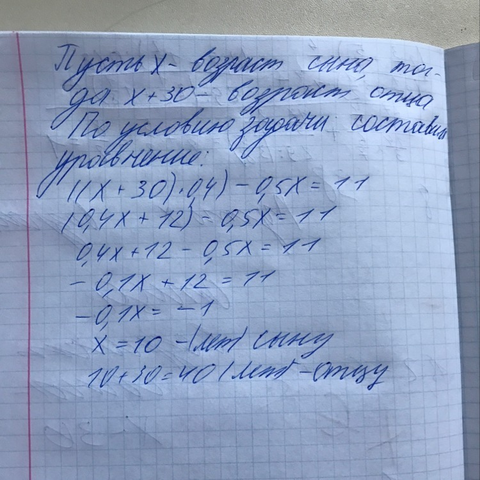 Пусть x - возраст сына, тог-
да x+30 - возраст отца
По условию задачи составим
уравнение:
((x + 30)·0,4) - 0,5x = 11
(0,4x + 12) - 0,5x = 11
0,4x + 12 - 0,5x = 11
- 0,1x + 12 = 11
- 0,1x = -1
x = 10 - (лет) сыну
10+30=40 (лет) - отцу